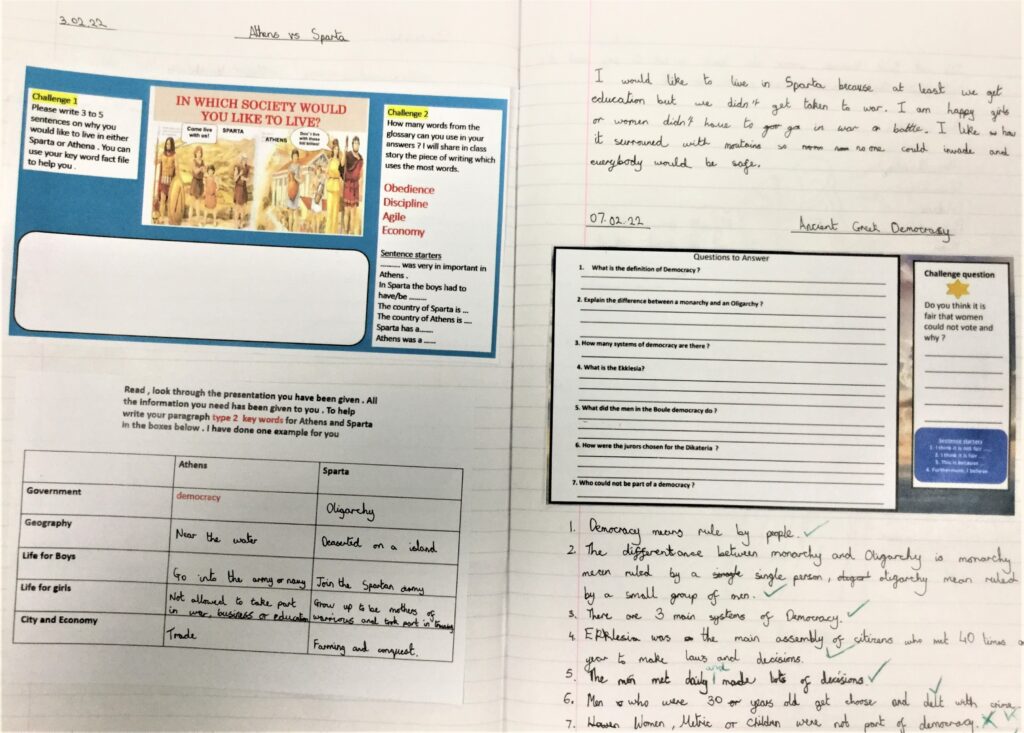 3.02.22
Athens vs Sparta
Challenge 1
Please write 3 to 5
sentences on why you
would like to live in either
Sparta or Athena . You can
use your key word fact file
to help you .
IN WHICH SOCIETY WOULD
YOU LIKE TO LIVE?
Come live
with us!
SPARTA
ATHENS
Don't live
with those
kid killers!
Challenge 2
How many words from the
glossary can you use in your
answers ? I will share in class
story the piece of writing which
uses the most words.
Obedience
Discipline
Agile
Economy
Sentence starters
........... was very in important in
Athens .
In Sparta the boys had to
have/be .........
The country of Sparta is ...
The country of Athens is ....
Sparta has a.......
Athens was a ......
Read , look through the presentation you have been given . All
the information you need has been given to you . To help
write your paragraph type 2 key words for Athens and Sparta
in the boxes below . I have done one example for you
Athens
Sparta
Government
democracy
Oligarchy
Geography
Near the water
Deaserted on a island
Life for Boys
Go into the army or navy
Join the Spartan army
Life for girls
Not allowed to take part
in war, business or education
Grow up to be mothers of
warrious and took part in
City and Economy
Trade
Farming and conquest.
I would like to live in Sparta because at least we get
education but we didn't get taken to war. I am happy girls
or women didn't have to go in war or battle. I like how
it surrouned with moutains so no one could invade and
everybody would be safe.
07.02.22
Ancient Greek Democracy
Questions to Answer
1. What is the definition of Democracy ?
2. Explain the difference between a monarchy and an Oligarchy ?
3. How many systems of democracy are there ?
4. What is the Ekklesia?
5. What did the men in the Boule democracy do ?
6. How were the jurors chosen for the Dikateria ?
7. Who could not be part of a democracy ?
Challenge question
Do you think it is
fair that women
could not vote and
why ?
Sentence starters
1. I think it is not fair ....
2. I think it is fair ....
3. This is because ....
4. Furthermore, I believe
1. Democracy means rule by people.
2. The differentance between monarchy and Oligarchy is monarchy
mean ruled by a single single person, oligarchy mean ruled
by a small group of men.
3. There are 3 main systems of Democracy.
4. EKklesia was the main assembly of citizens who met 40 times a
year to make laws and decisions.
5. The men met daily and made lots of decisions
6. Men who were 30 or years old get choose and delt with crime.
7. Women, Metric or Children were not part of democracy.